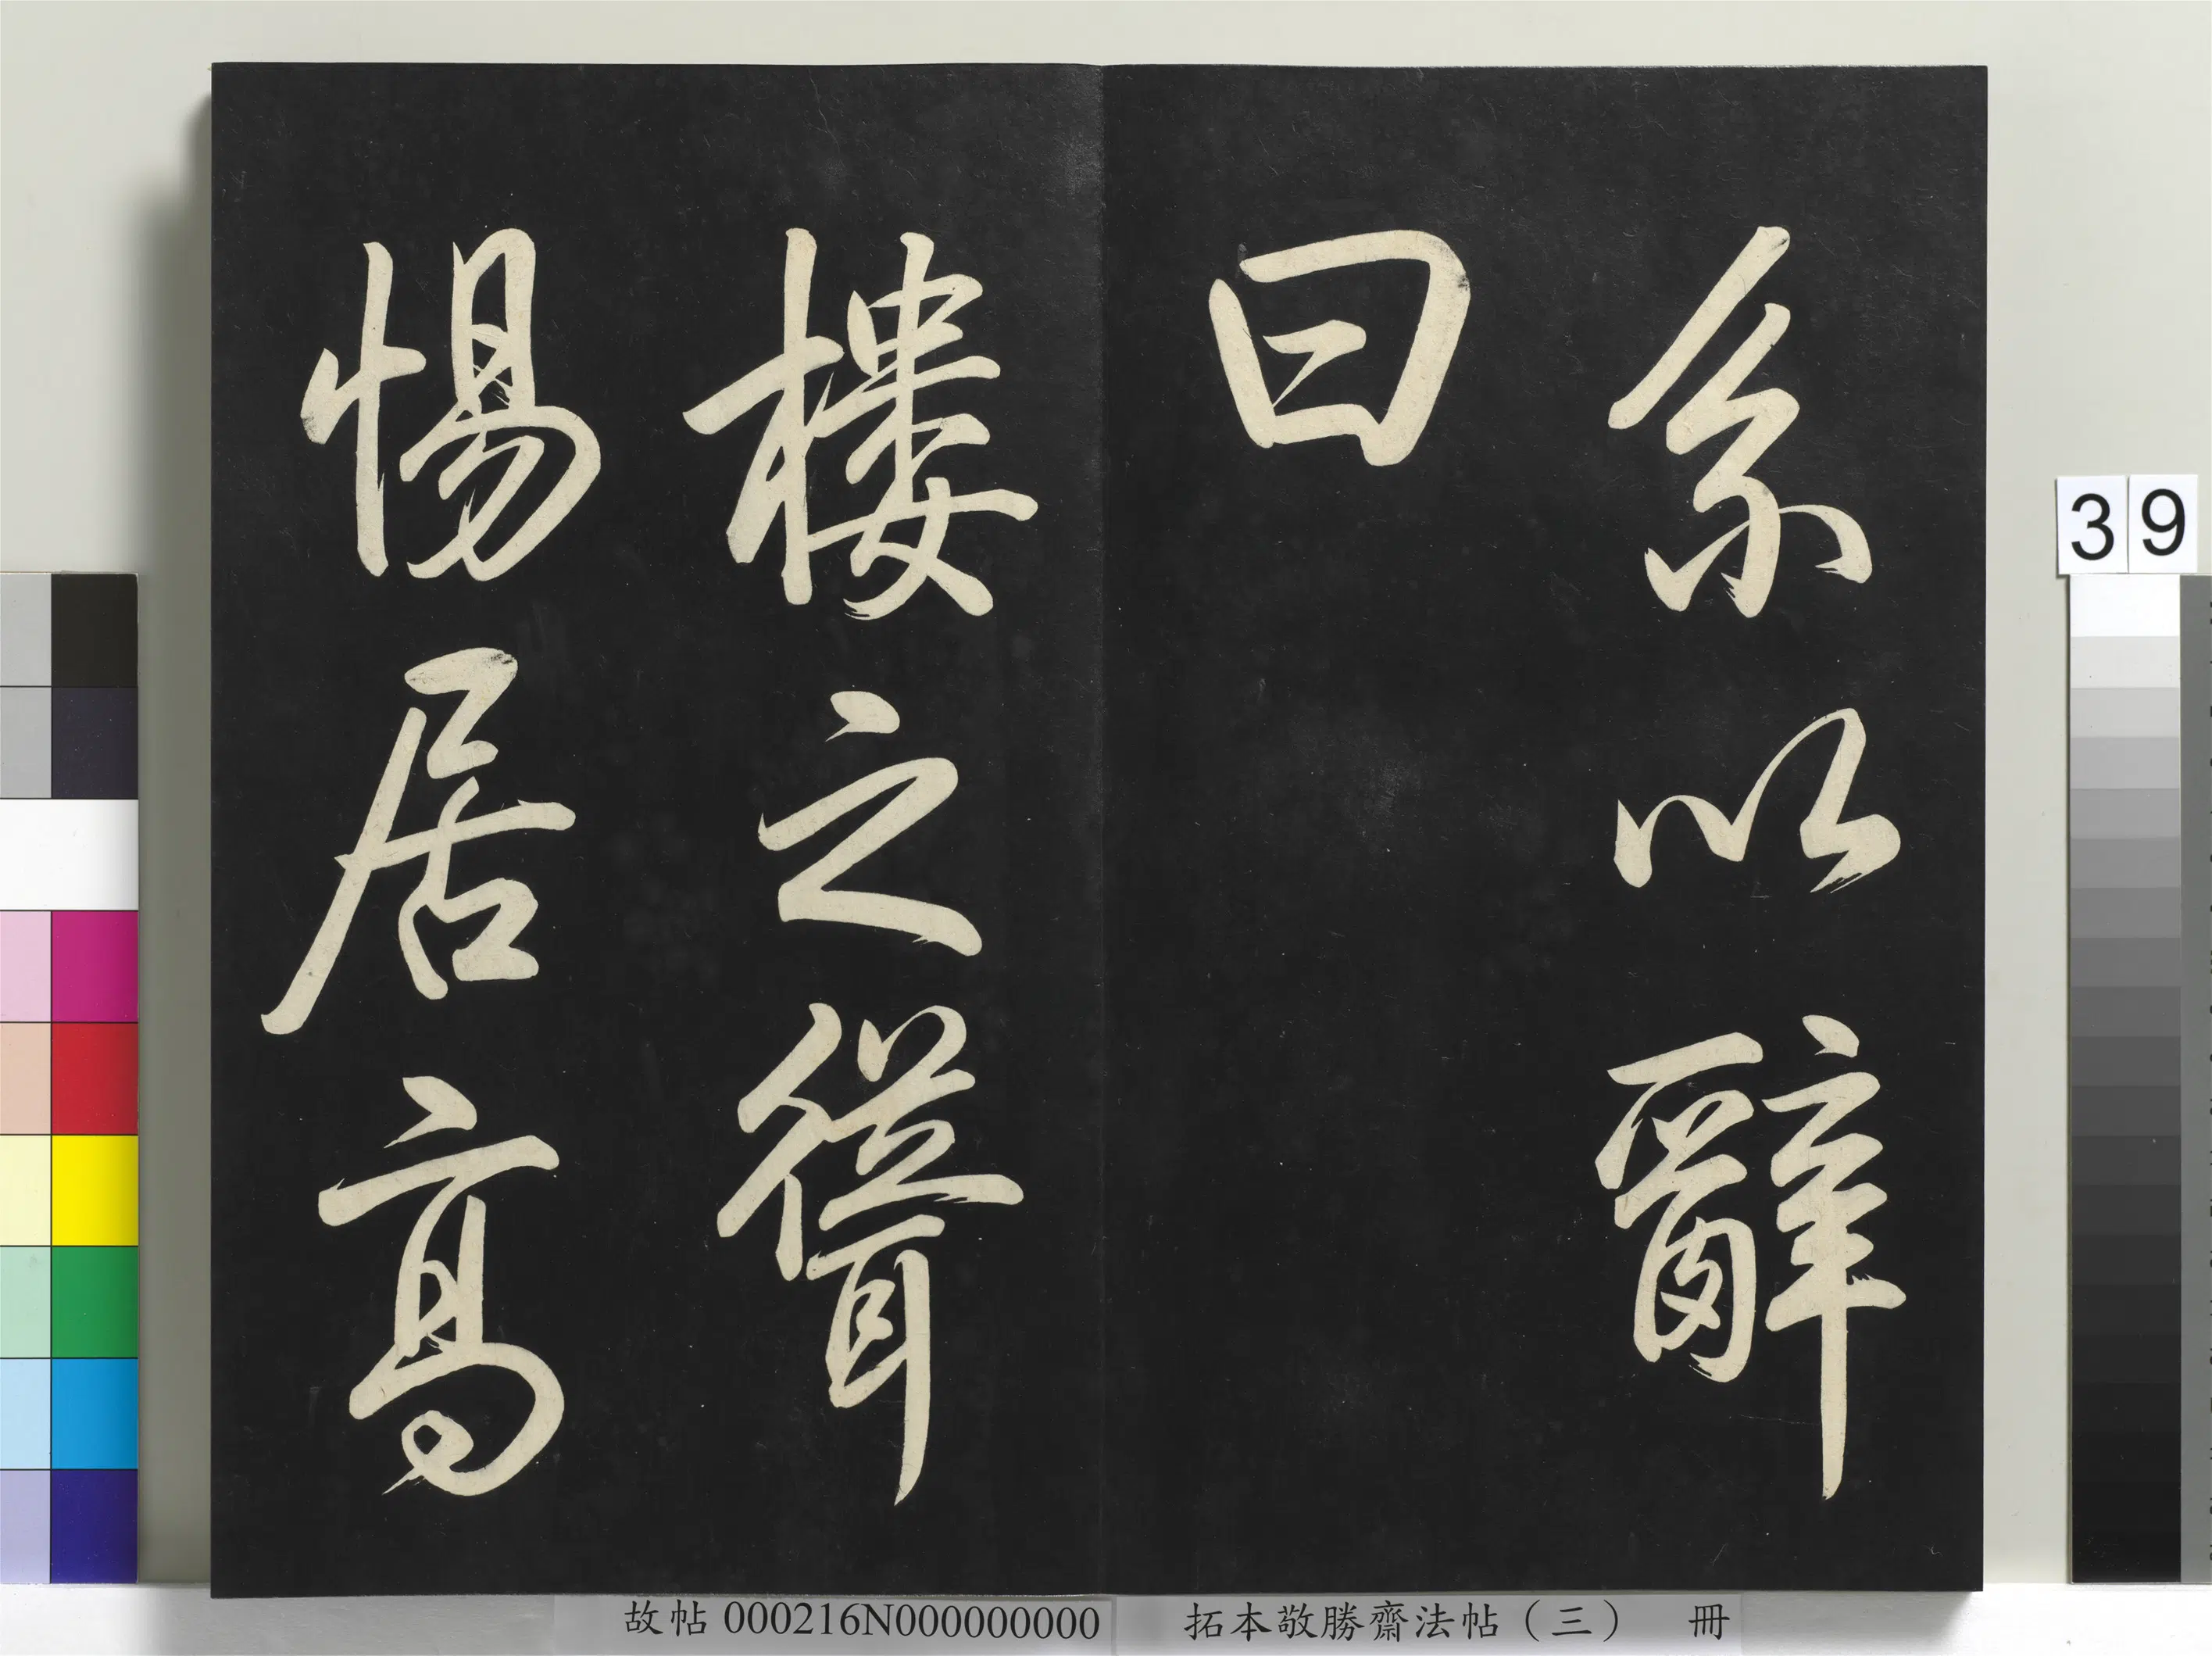 系以辭
曰
樓之聳
惕居高
39
故帖 000216N000000000
拓本敬勝齋法帖（三） 冊